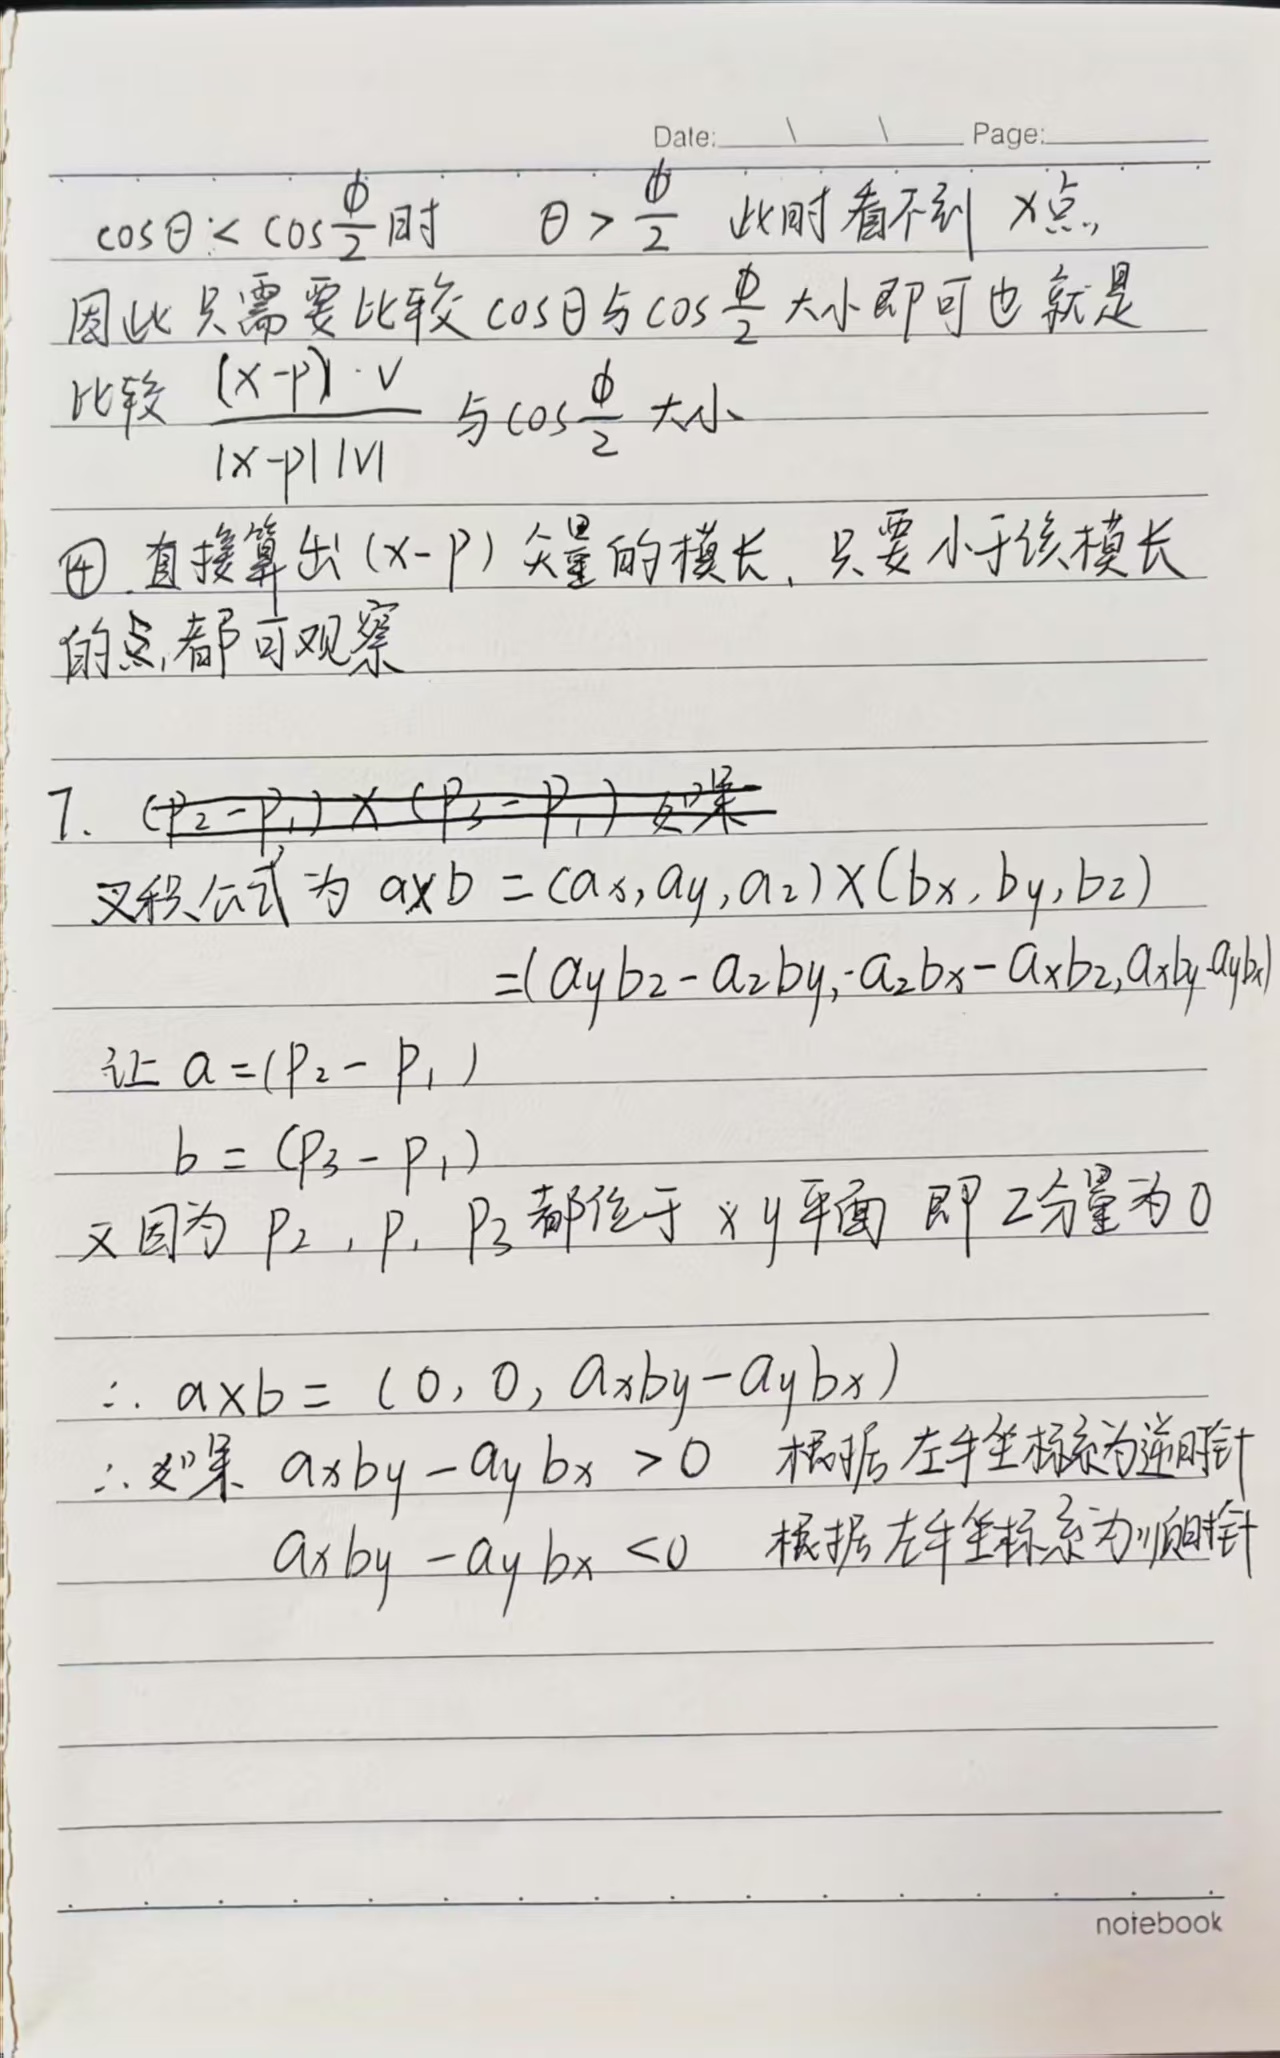 Date: \ \ Page:
cosθ < cos ϕ/2 时 θ > ϕ/2 此时看不到 x点,
因此只需要比较 cosθ与cos ϕ/2 大小即可也就是
比较 (x-p)·v / |x-p||v| 与cos ϕ/2 大小
④.直接算出(x-p)矢量的模长,只要小于该模长
的点,都可观察
7. (P₂-P₁)×(P₃-P₁) 如果
叉积公式为 a×b =(ax,ay,az)×(bx,by,bz)
=(aybz-azby,-azbx-axbz,axby-aybx)
让 a=(P₂-P₁)
b=(P₃-P₁)
又因为 P₂,P₁ P₃都位于 xy平面 即 Z分量为0
∴ a×b= (0,0,axby-aybx)
∴如果 axby-aybx >0 根据左手坐标系为逆时针
axby-aybx <0 根据左手坐标系为顺时针
notebook